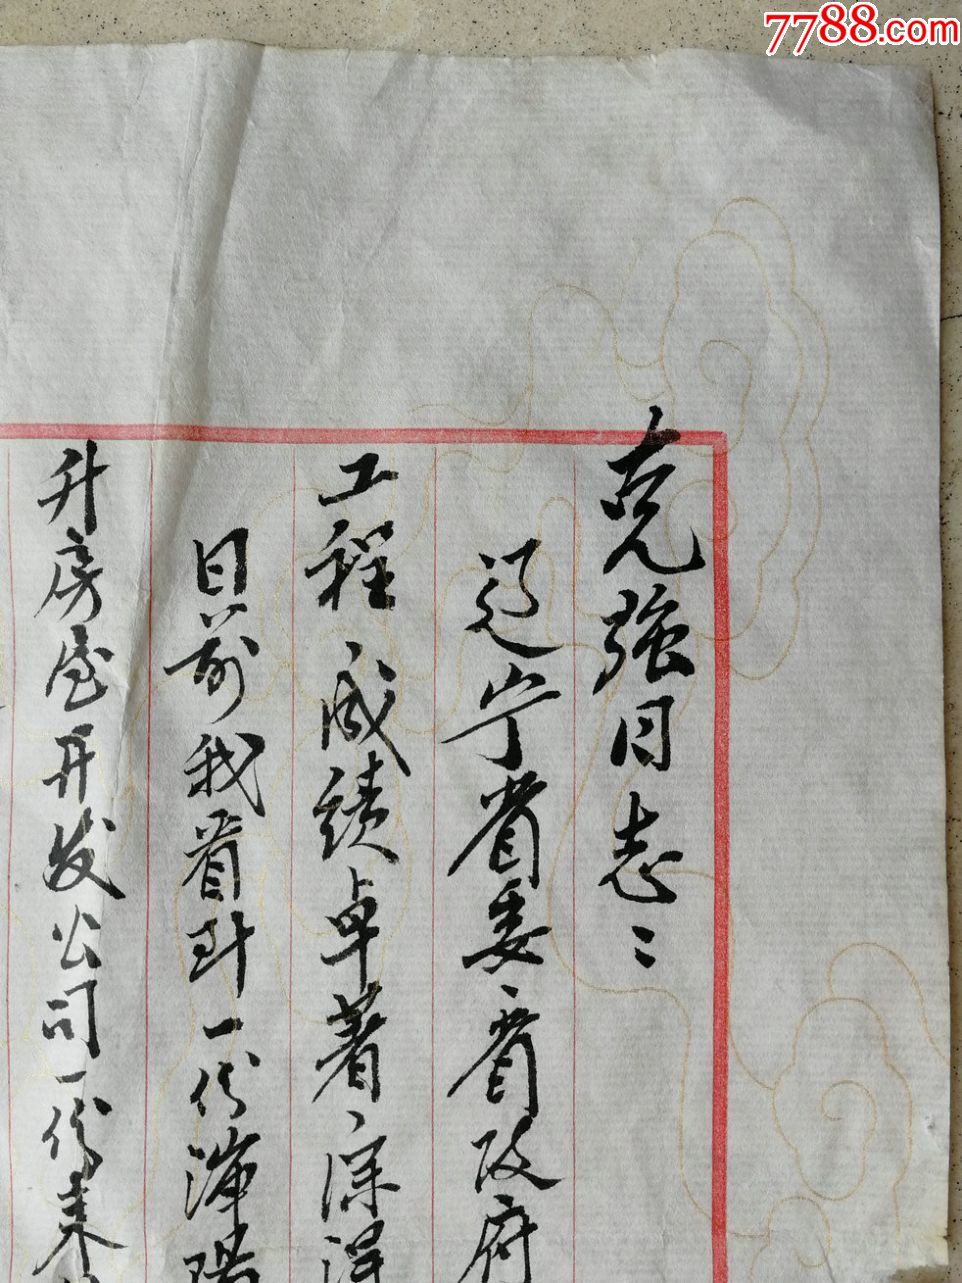 7788.com
克强同志：
辽宁省委、省政府
工程、成绩卓著、深得
日前我省对一份沈阳
升房屋开发公司一份来